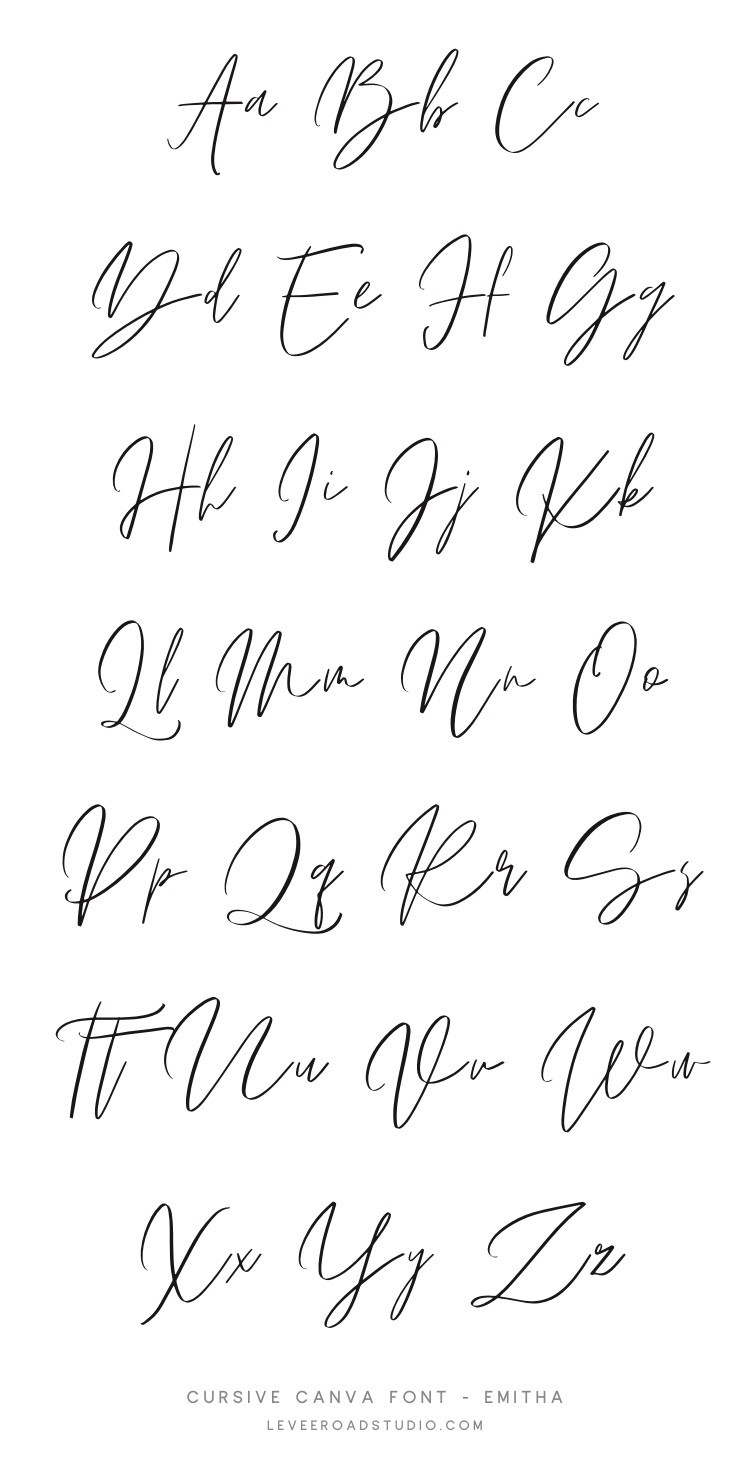 Aa Bb Cc
Dd Ee Ff Gg
Hh Ii Jj Kk
Ll Mm Nn Oo
Pp Qq Rr Ss
Tt Uu Vv Ww
Xx Yy Zz
CURSIVE CANVA FONT - EMITHA
LEVEEROADSTUDIO.COM